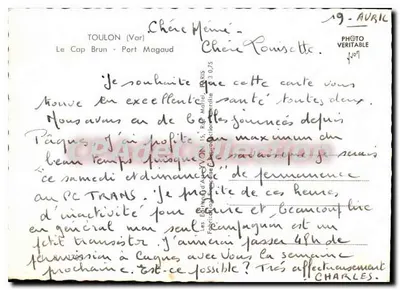 19 - AVRIL
TOULON (Var)
Le Cap Brun - Port Magaud
PHOTO
VERITABLE
Chère Mémé -
Chère Louisette.
Je souhaite que cette carte vous
trouve en excellente santé toutes deux.
Nous avons eu de belles journées depuis
Pâques. J'ai profité au maximum du
beau temps puisque je savais que je serais
ce samedi et dimanche "de permanence
au PC TRANS. Je profite de ces heures
d'inactivité pour écrire et beaucoup lire
en général mon seul compagnon est un
petit transistor. J'aimerai passer 48h de
permission à Cagnes avec vous la semaine
prochaine. Est-ce possible? Très affectueusement
CHARLES.